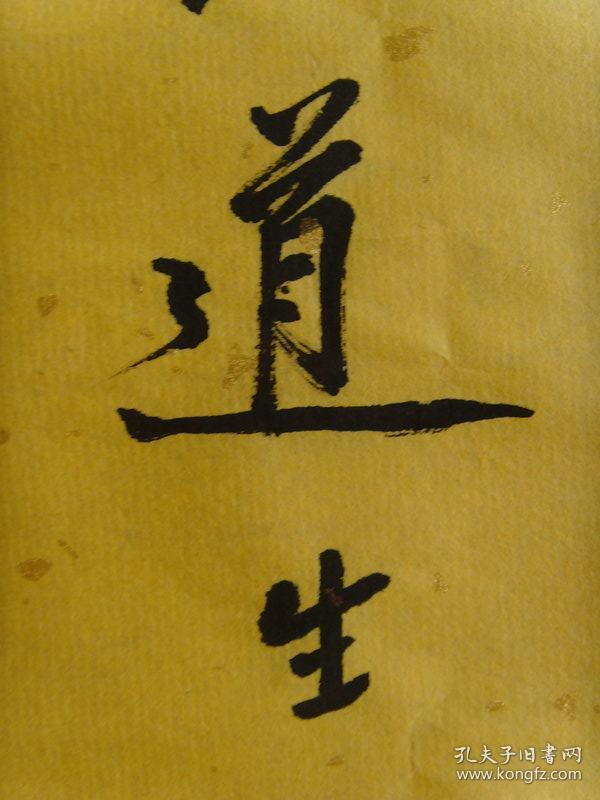 道
生
孔夫子旧書网
www.kongfz.com